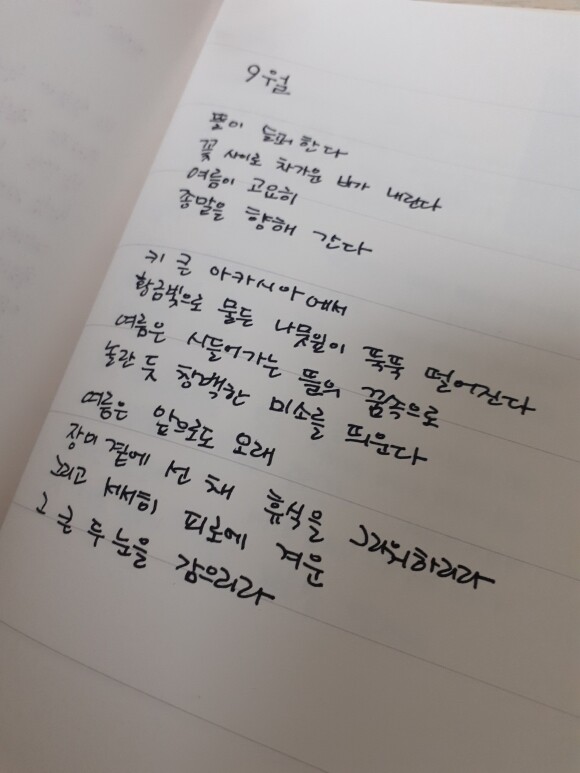 9월
뜰이 슬퍼한다
꽃 사이로 차가운 비가 내린다
여름이 고요히
종말을 향해 간다
키 큰 아카시아에서
황금빛으로 물든 나뭇잎이 뚝뚝 떨어진다
여름은 시들어가는 뜰의 꿈속으로
놀란 듯 창백한 미소를 띄운다
여름은 앞으로도 오래
장미 곁에 선 채 휴식을 그리워하리라
그리고 서서히 피로에 겨운
그 큰 두 눈을 감으리라